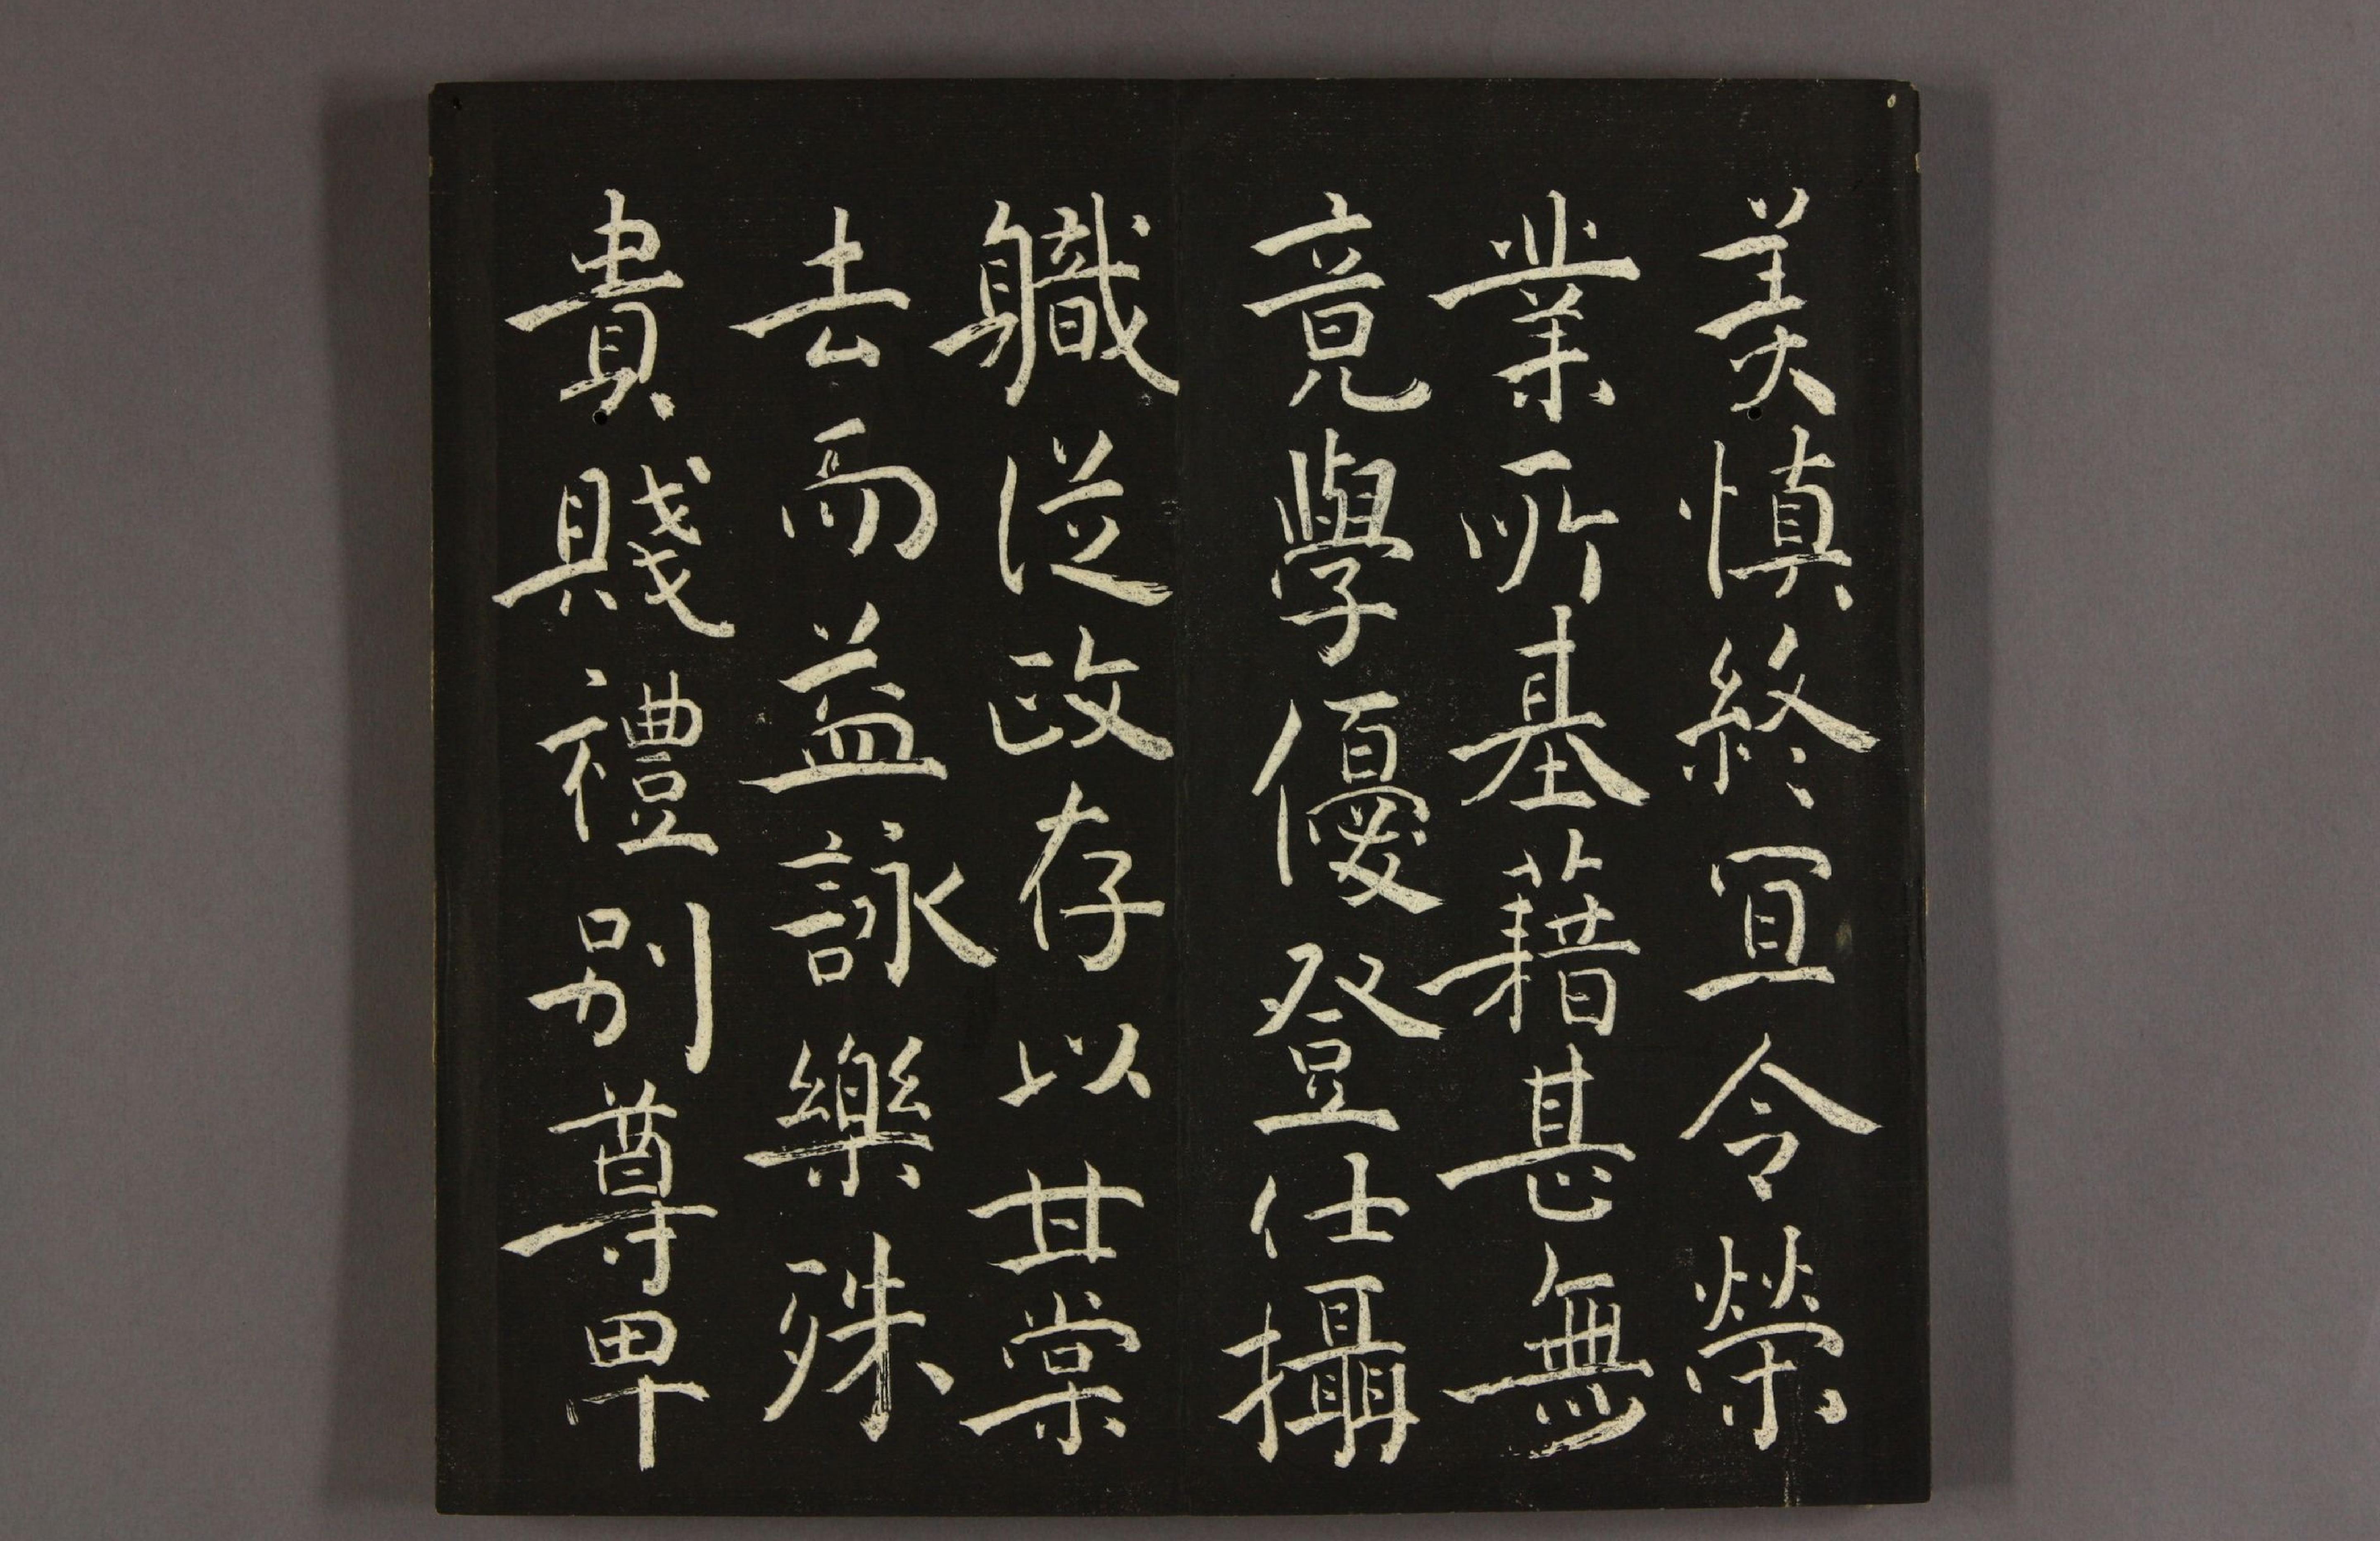 美慎終冝令榮
業所基藉甚無
竟學優登仕攝
軄從政存以甘棠
去而益詠樂殊
貴賤禮別尊卑